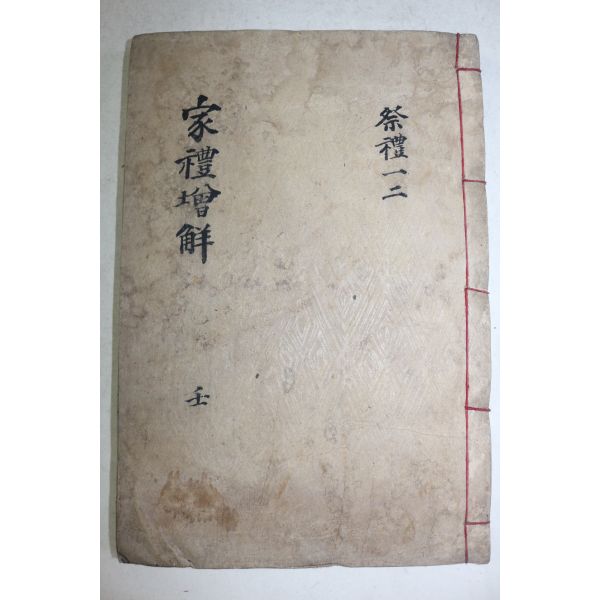 祭禮一二
家禮增觧
壬